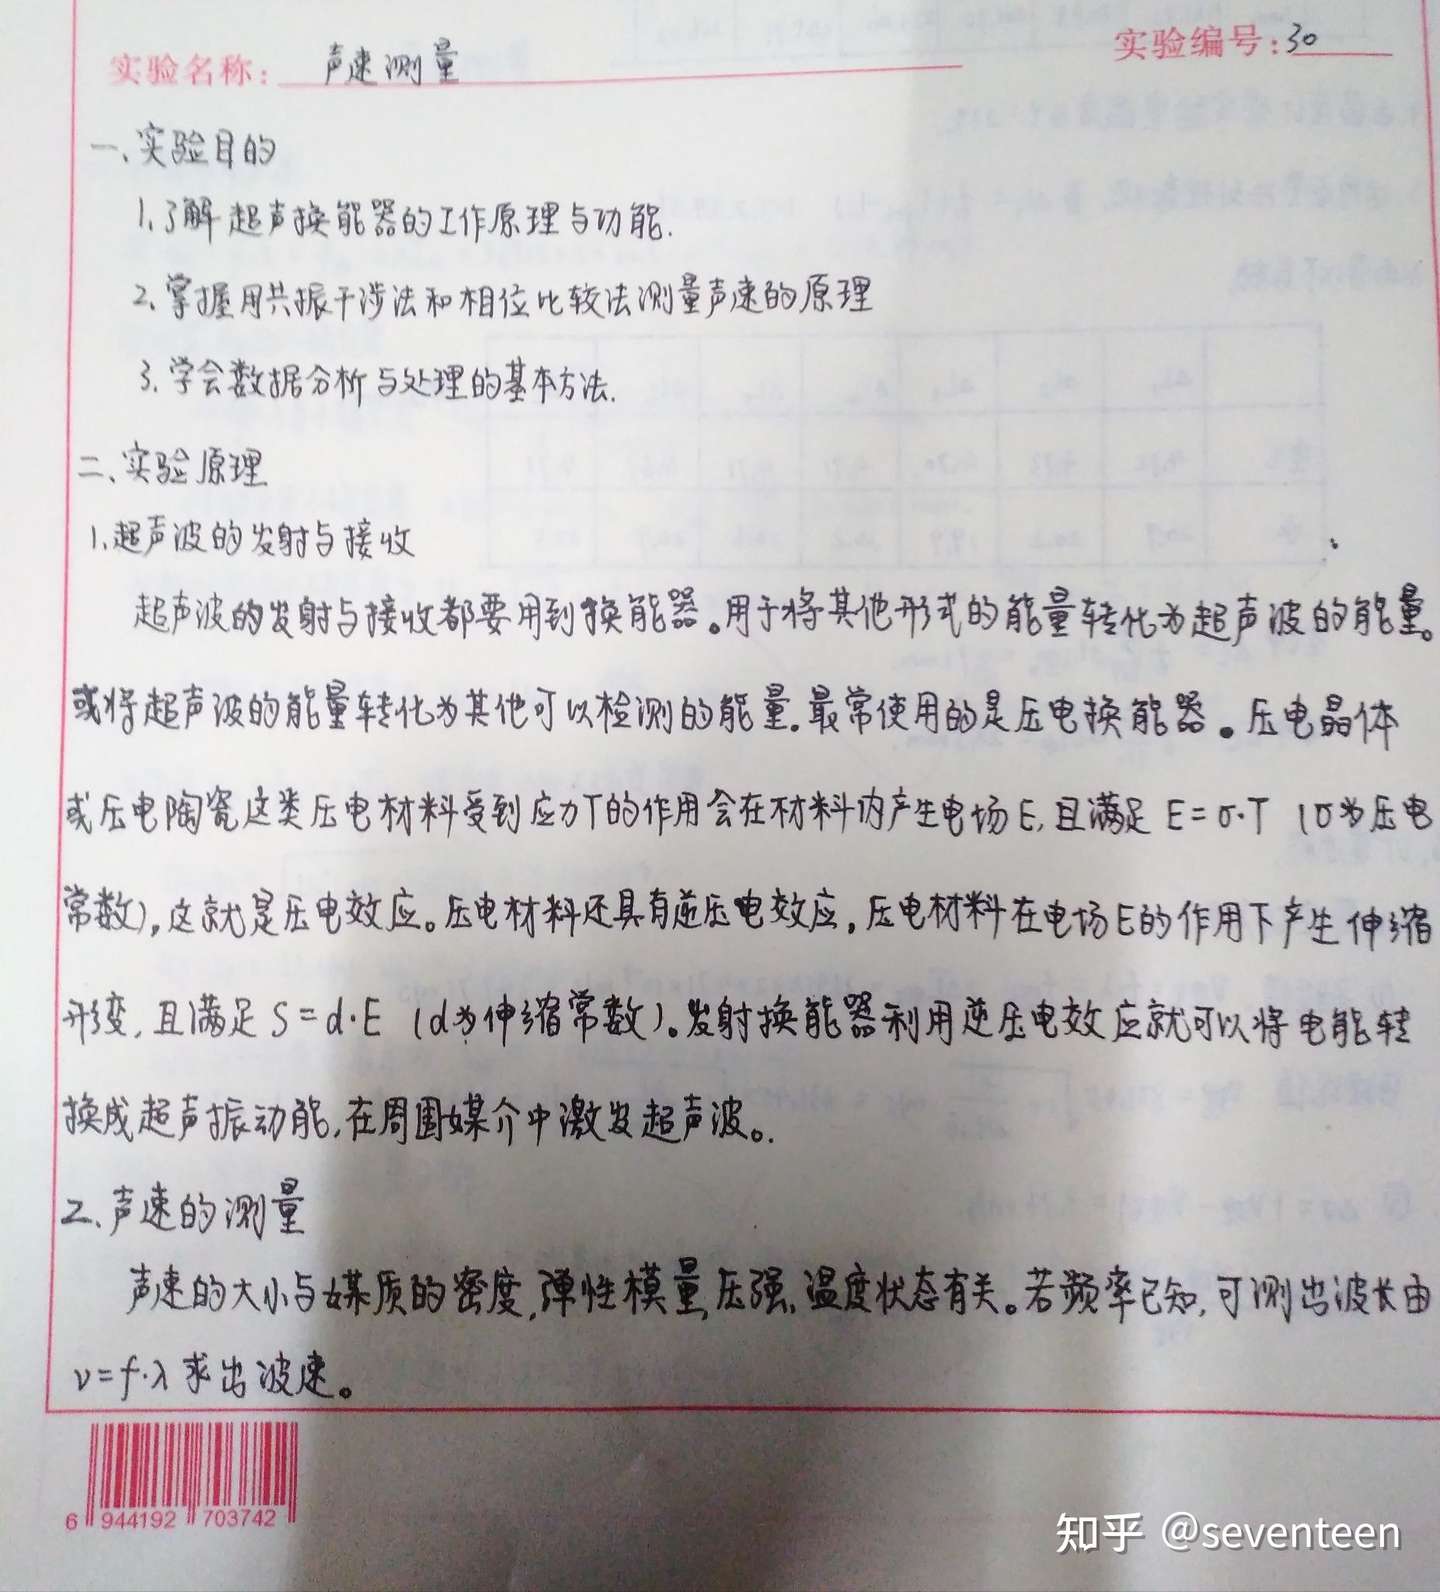 实验名称: 声速测量 实验编号: 30
一、实验目的
1. 了解超声换能器的工作原理与功能.
2. 掌握用共振干涉法和相位比较法测量声速的原理
3. 学会数据分析与处理的基本方法.
二、实验原理
1. 超声波的发射与接收
超声波的发射与接收都要用到换能器。用于将其他形式的能量转化为超声波的能量。
或将超声波的能量转化为其他可以检测的能量. 最常使用的是压电换能器。压电晶体
或压电陶瓷这类压电材料受到应力T的作用会在材料内产生电场E, 且满足 E=σ·T (σ为压电
常数), 这就是压电效应。压电材料还具有逆压电效应, 压电材料在电场E的作用下产生伸缩
形变, 且满足 S=d·E (d为伸缩常数)。发射换能器利用逆压电效应就可以将电能转
换成超声振动能, 在周围媒介中激发超声波。
2. 声速的测量
声速的大小与媒质的密度, 弹性模量, 压强, 温度状态有关。若频率已知, 可测出波长由
v=f·λ 求出波速。
6 944192 703742
知乎 @seventeen